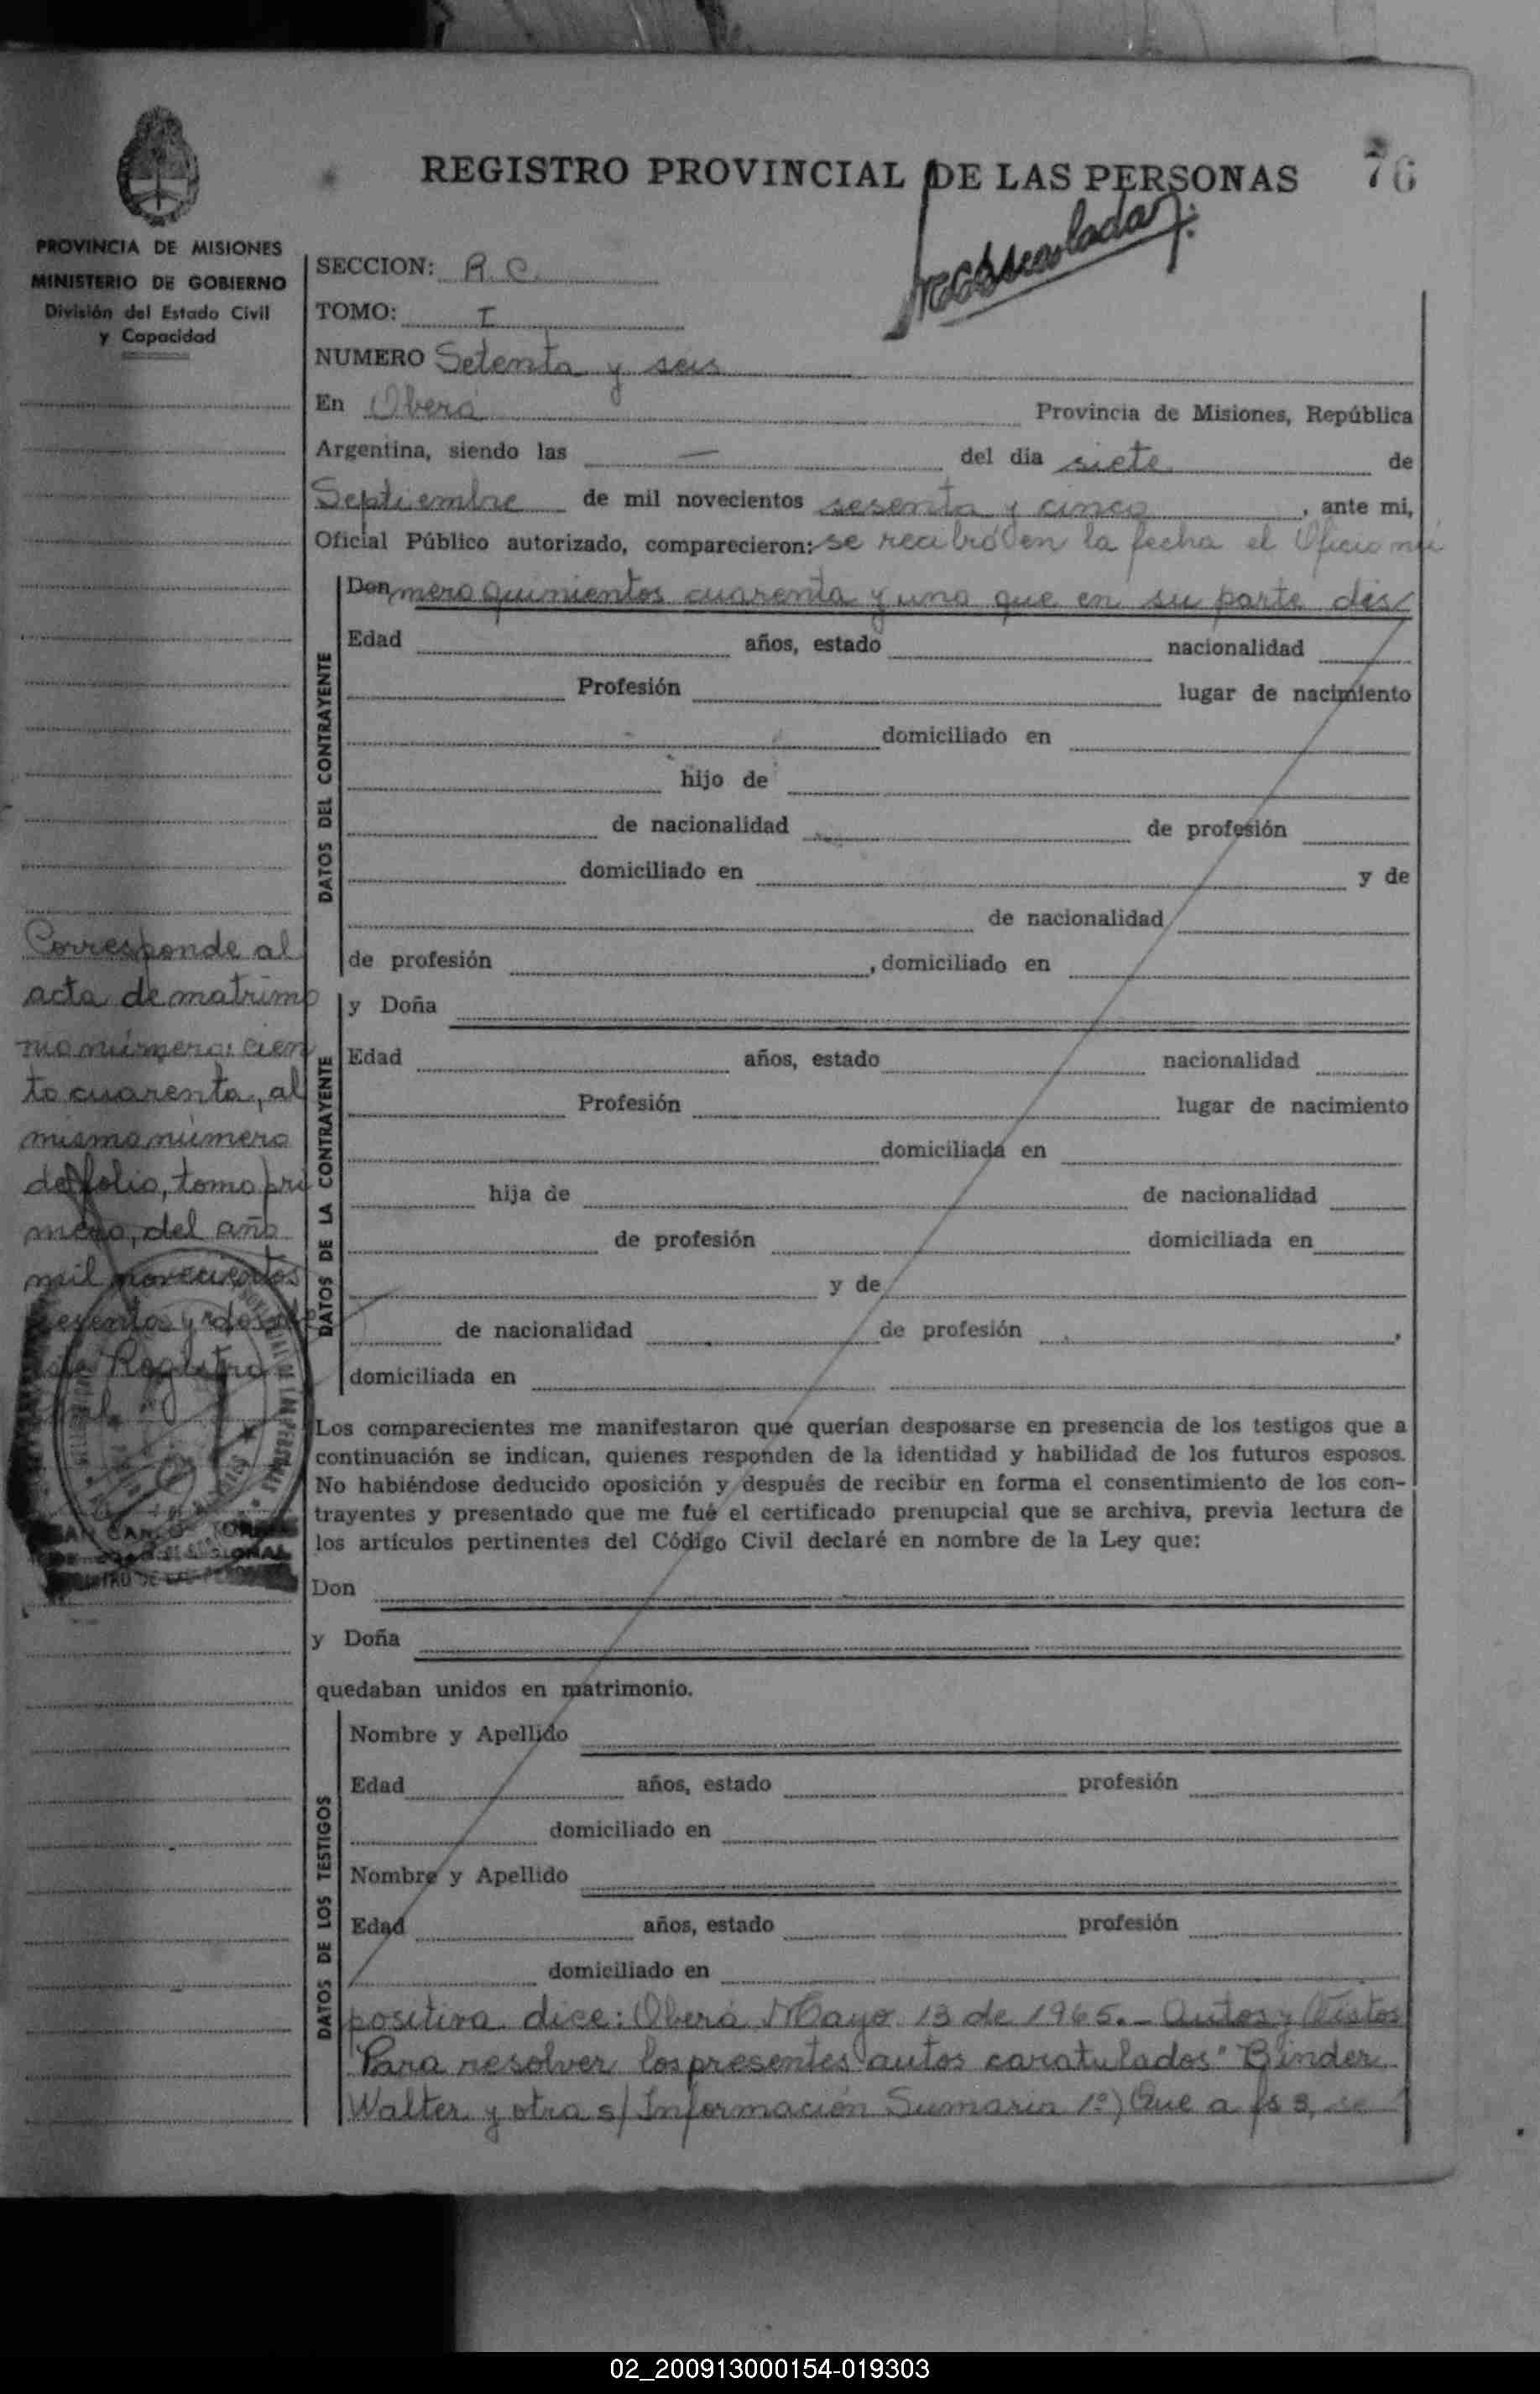 REGISTRO PROVINCIAL DE LAS PERSONAS 76
PROVINCIA DE MISIONES
MINISTERIO DE GOBIERNO
División del Estado Civil
y Capacidad
SECCION: R. C.
TOMO: I
NUMERO Setenta y seis
En Oberá Provincia de Misiones, República
Argentina, siendo las — del día siete de
Septiembre de mil novecientos sesenta y cinco, ante mi,
Oficial Público autorizado, comparecieron: se recibió en la fecha el Oficio nú
Don mero quinientos cuarenta y uno que en su parte dis/
DATOS DEL CONTRAYENTE
Edad años, estado nacionalidad
Profesión lugar de nacimiento
domiciliado en
hijo de
de nacionalidad de profesión
domiciliado en y de
de nacionalidad
de profesión , domiciliado en
y Doña
DATOS DE LA CONTRAYENTE
Edad años, estado nacionalidad
Profesión lugar de nacimiento
domiciliada en
hija de de nacionalidad
de profesión domiciliada en
y de
de nacionalidad de profesión ,
domiciliada en
Corresponde al
acta de matrimo
nio número: cien
to cuarenta, al
mismo número
del folio, tomo pri
mero, del año
mil novecientos
sesenta y dos
Registro
Los comparecientes me manifestaron que querían desposarse en presencia de los testigos que a
continuación se indican, quienes responden de la identidad y habilidad de los futuros esposos.
No habiéndose deducido oposición y después de recibir en forma el consentimiento de los con-
trayentes y presentado que me fué el certificado prenupcial que se archiva, previa lectura de
los artículos pertinentes del Código Civil declaré en nombre de la Ley que:
Don
y Doña
quedaban unidos en matrimonio.
DATOS DE LOS TESTIGOS
Nombre y Apellido
Edad años, estado profesión
domiciliado en
Nombre y Apellido
Edad años, estado profesión
domiciliado en
positiva dice: Oberá Mayo 13 de 1965.- Autos y Vistos
Para resolver los presentes autos caratulados "Binder
Walter y otra s/ Información Sumaria 1º) Que a fs 3, se
02_200913000154-019303